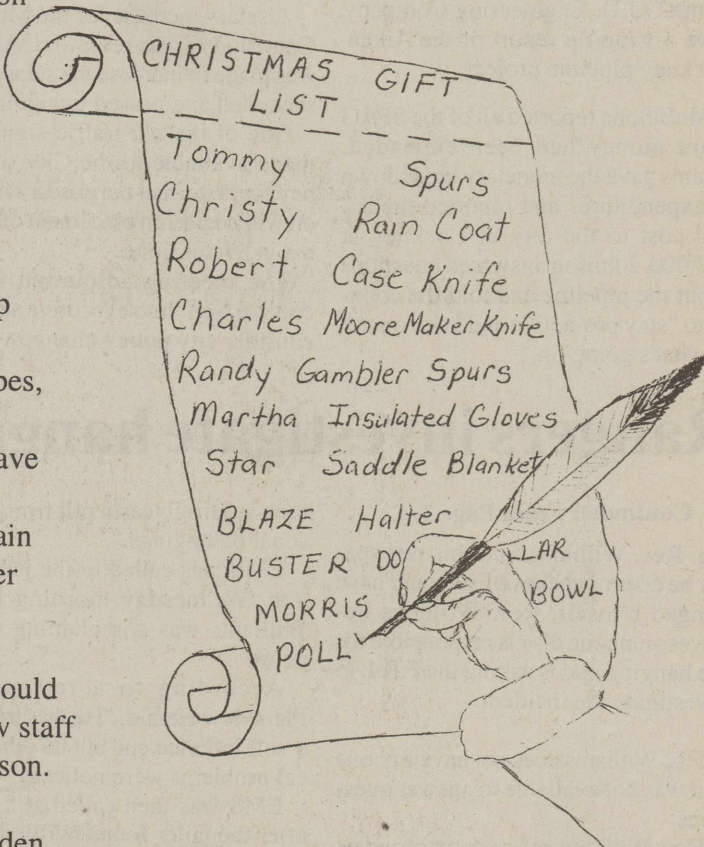 CHRISTMAS GIFT
LIST
Tommy Spurs
Christy Rain Coat
Robert Case Knife
Charles Moore Maker Knife
Randy Gambler Spurs
Martha Insulated Gloves
Star Saddle Blanket
BLAZE Halter
BUSTER DO LAR
BOWL
MORRIS
POLL
on
p
pes,
ave
ain
er
ould
staff
son.
den